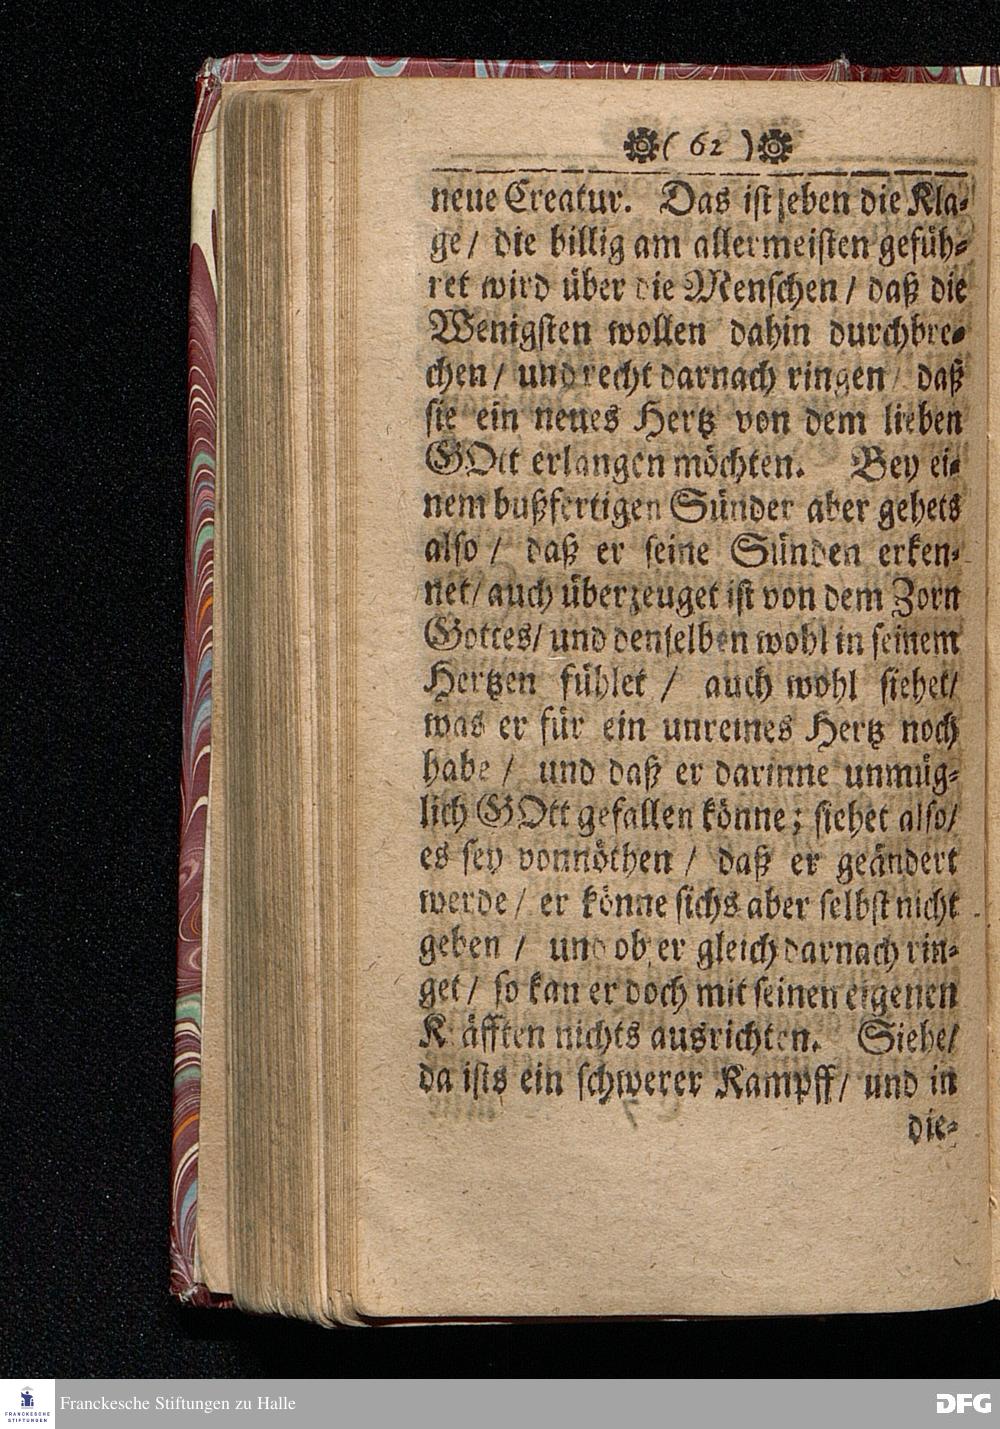 ( 62 )
neue Creatur. Das ist eben die Kla-
ge / die billig am allermeisten gefüh-
ret wird über die Menschen / daß die
Wenigsten wollen dahin durchbre-
chen / und recht darnach ringen / daß
sie ein neues Hertz von dem lieben
GOtt erlangen möchten. Bey ei-
nem bußfertigen Sünder aber gehets
also / daß er seine Sünden erken-
net / auch überzeuget ist von dem Zorn
Gottes / und denselben wohl in seinem
Hertzen fühlet / auch wohl siehet /
was er für ein unreines Hertz noch
habe / und daß er darinne unmüg-
lich GOtt gefallen könne ; siehet also /
es sey vonnöthen / daß er geändert
werde / er könne sichs aber selbst nicht
geben / und ob er gleich darnach rin-
get / so kan er doch mit seinen eigenen
Kräfften nichts ausrichten. Siehe /
da ists ein schwerer Kampff / und in
die-
FRANCKESCHE
STIFTUNGEN
Franckesche Stiftungen zu Halle
DFG